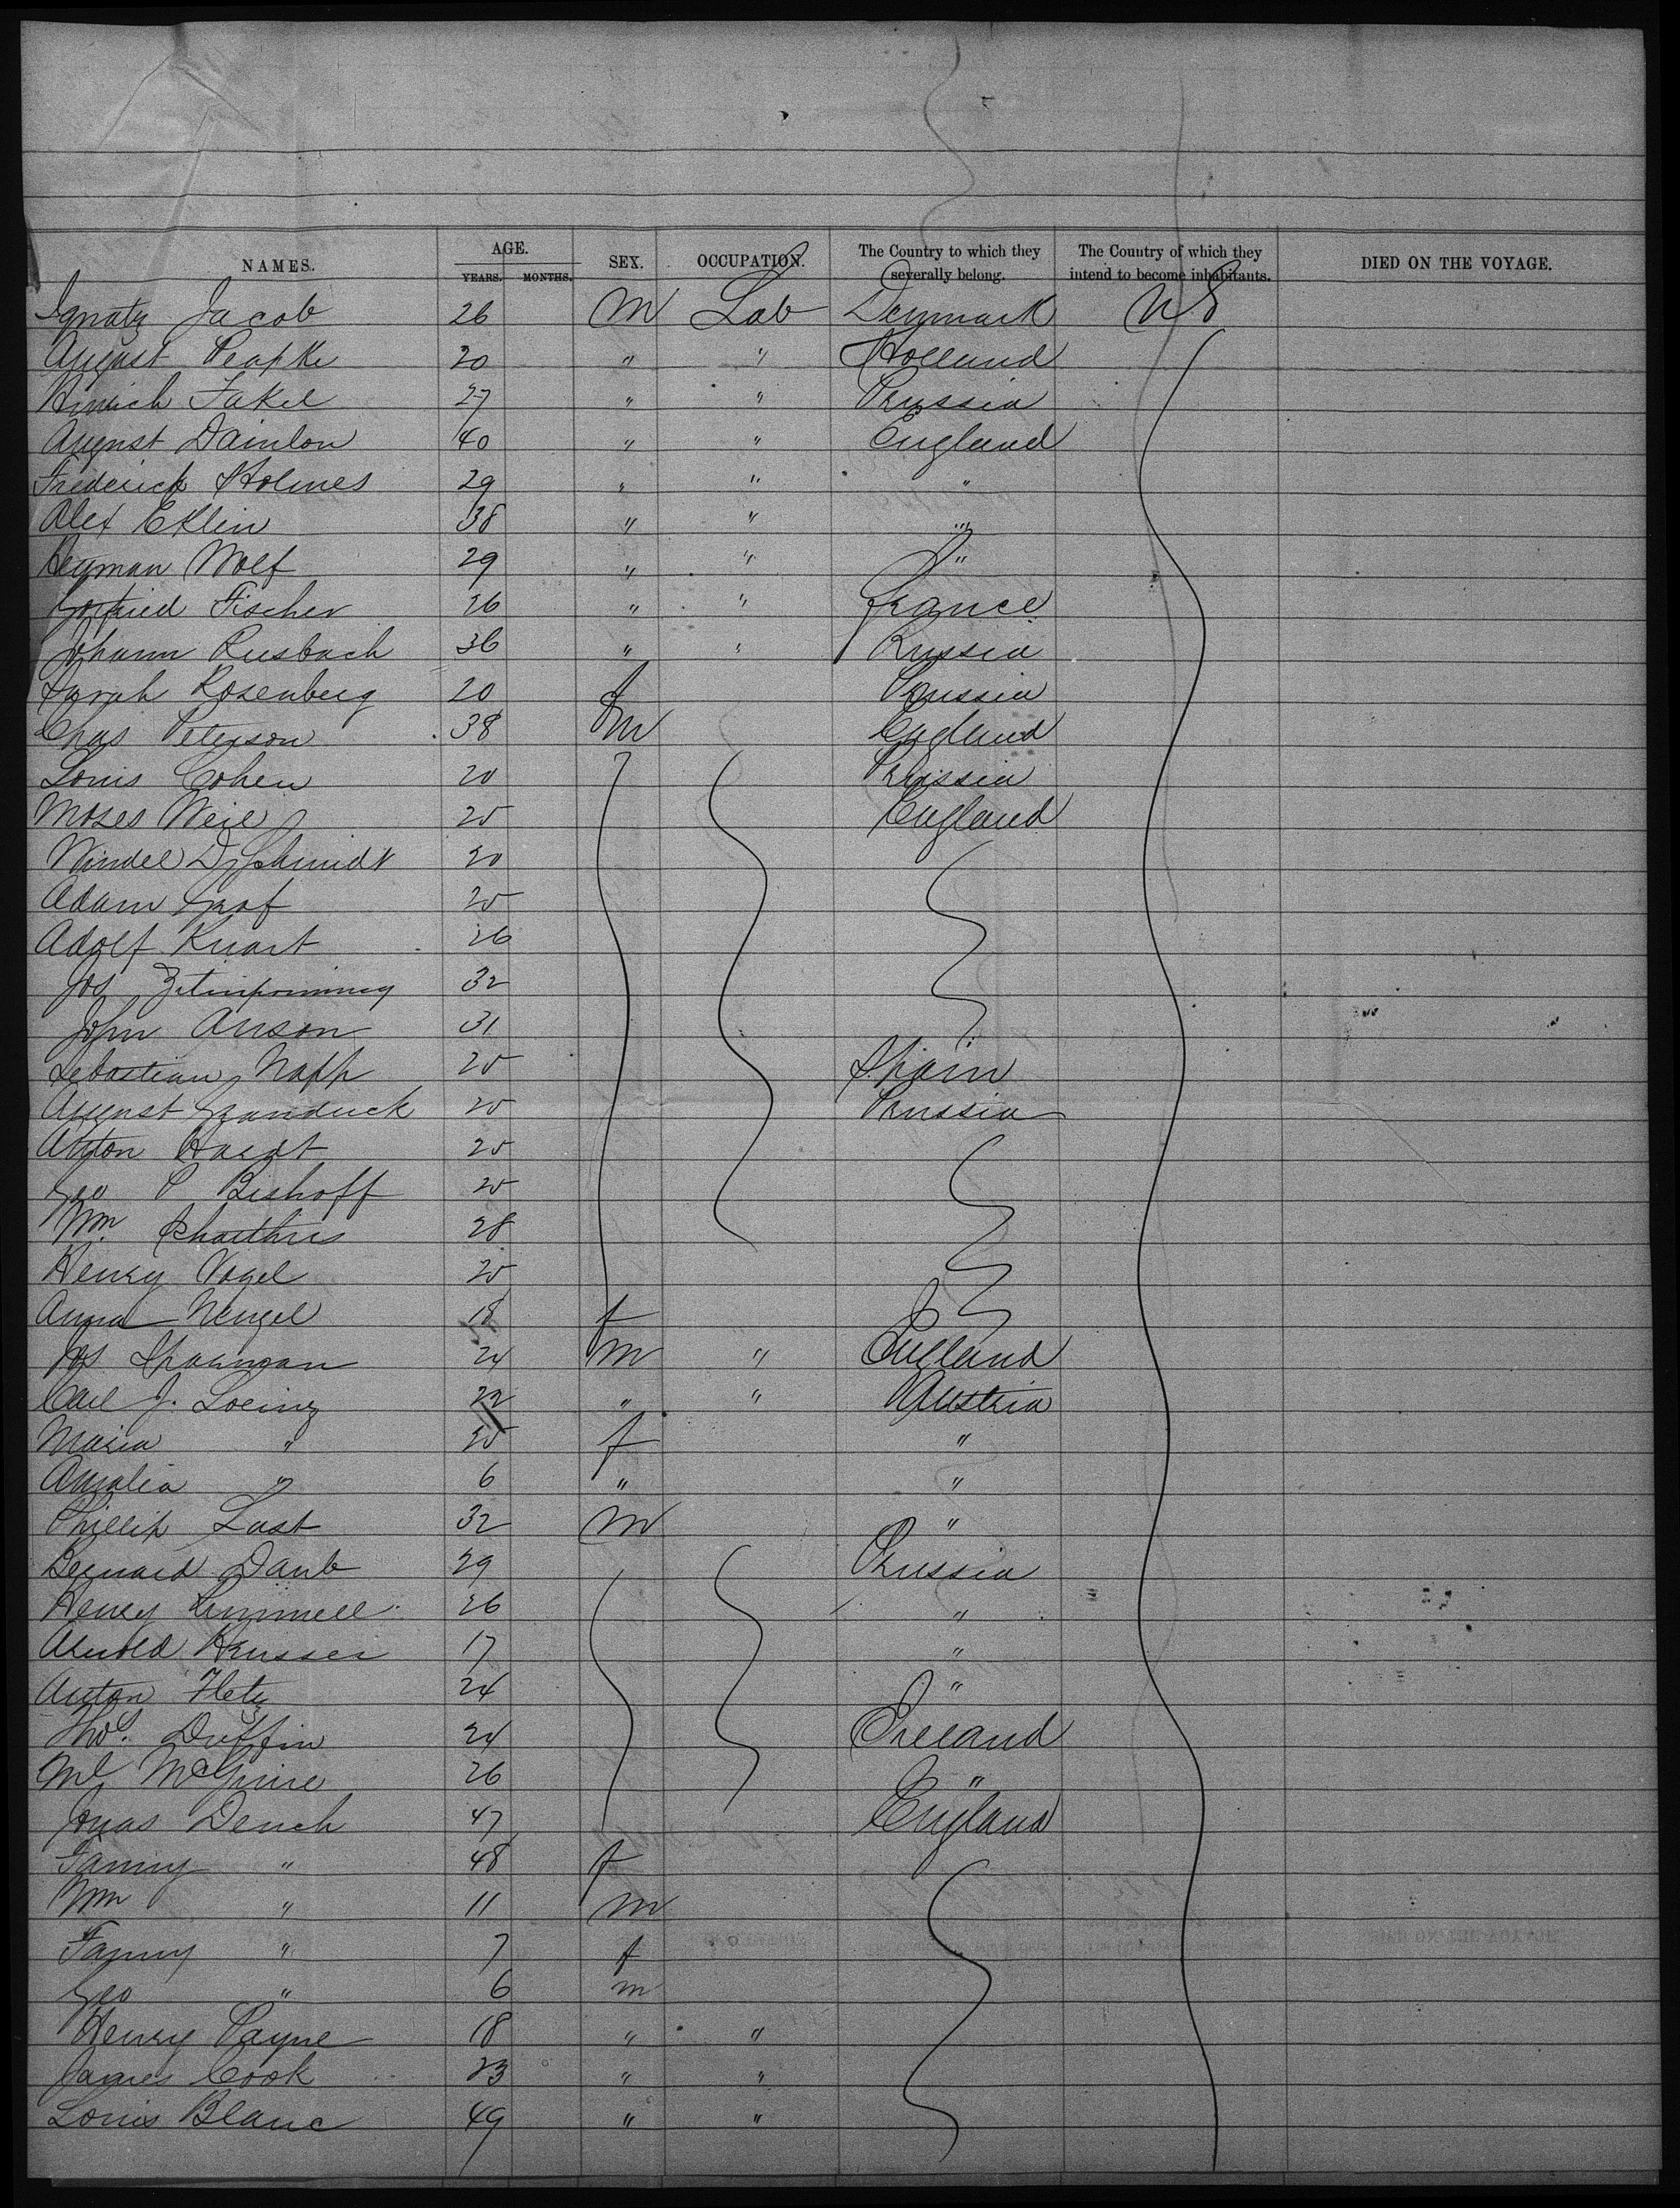 NAMES. AGE. SEX. OCCUPATION. The Country to which they severally belong. The Country of which they intend to become inhabitants. DIED ON THE VOYAGE.
YEARS. MONTHS.
Ignatz Jacob 26 M Lab Denmark US
August 20 " " Holland
Hinrich Fakel 27 " " Prussia
August Dainlon 40 " " England
Frederick Holmes 29 " " "
Alex Eklin 38 " " "
Herman Wolf 29 " " "
Gottfried Fischer 26 " " France
Johann Rusbach 36 " " Russia
Sarah Rosenberg 20 f Prussia
Chas Peterson 38 m England
Louis Cohen 20 Prussia
Moses Weil 25 England
Windel D Schmidt 20
Adam Graf 25
Adolf Knart 26
Jos 32
John Anson 31
Sebastian Napp 25 Spain
August 25 Prussia
Anton Haedt 25
Geo P Bishoff 25
Wm. 28
Henry Vogel 25
Anna Wengel 18 f
Jos Sparman 24 m " England
Carl J. Loeinz 22 " " Austria
Maria " 25 f "
Amalia " 6 " "
Phillip Last 32 M "
Bernard Daub 29 Prussia
Henry Kimmell 26 "
Arnold Krusser 17 "
Anton Hetz 24 "
Thos. Duffin 24 Ireland
Ml McGuire 26 "
Jonas Dench 47 England
Fanny " 48 f
Wm " 11 m
Fanny " 7 f
Geo " 6 m
Henry Payne 18 " "
James Cook 23 " "
Louis Blanc 49 " "